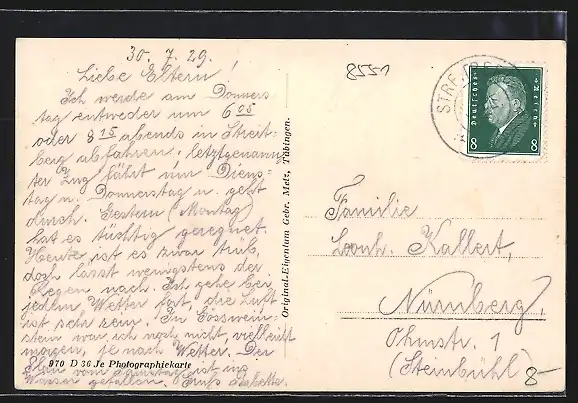 30. 7. 29.
Liebe Eltern!
Ich werde am Donners-
tag entweder um 6 05
oder 8 15 abends in Streit-
berg abfahren. letztgenann-
ter Zug fährt nur Diens-
tag u. Donnerstag u. geht
durch. Gestern (Montag)
hat es tüchtig geregnet.
Heute ist es zwar trüb,
doch lässt wenigstens der
Regen nach. Ich gehe bei
jedem Wetter fort, die Luft
ist sehr rein. In Gösswein-
stein war ich noch nicht, vielleicht
morgen, je nach Wetter. Der
Plan vom Samstag ist ins
Wasser gefallen. Gruß Babette.
970 D 36 Je Photographiekarte
Original-Eigentum Gebr. Metz, Tübingen.
8551
STREITBERG
Deutsches Reich
8 8
Familie
Leonh. Kallert,
Nürnberg.
Ohmstr. 1
(Steinbühl)
8-